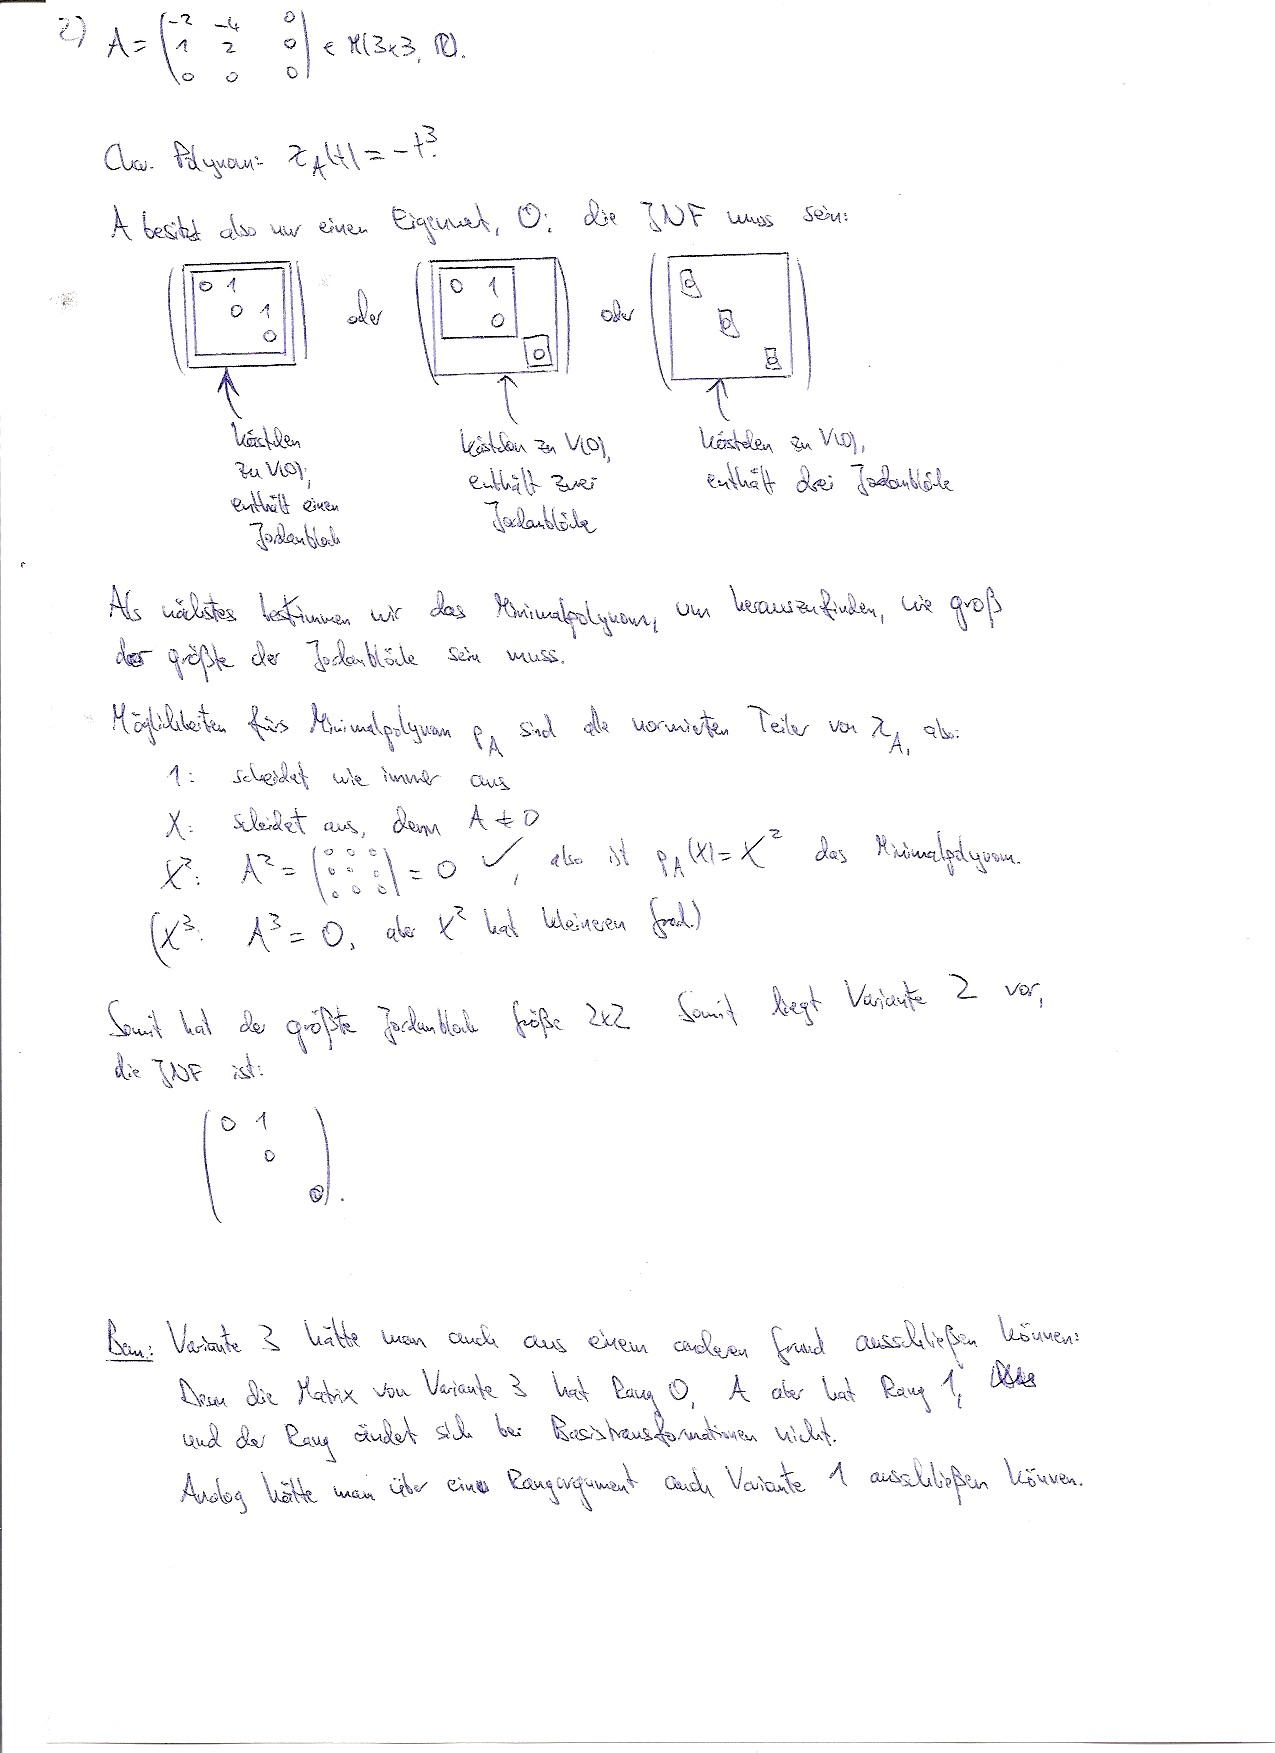 2) A = (-2 -4 0
1 2 0
0 0 0) ∈ M(3x3, ℝ).
Char. Polynom: χ_A(t) = -t³.
A besitzt also nur einen Eigenwert, 0; die JNF muss sein:
(0 1
0 1
0) oder (0 1
0
0) oder (0
0
0)
Kästchen
zu V(0);
enthält einen
Jordanblock
Kästchen zu V(0),
enthält zwei
Jordanblöcke
Kästchen zu V(0),
enthält drei Jordanblöcke
Als nächstes bestimmen wir das Minimalpolynom, um herauszufinden, wie groß
der größte der Jordanblöcke sein muss.
Möglichkeiten fürs Minimalpolynom p_A sind alle normierten Teiler von χ_A, also:
1: scheidet wie immer aus
X: scheidet aus, denn A ≠ 0
X²: A² = (0 0 0
0 0 0
0 0 0) = 0 ✓, also ist p_A(X) = X² das Minimalpolynom.
(X³: A³ = 0, aber X² hat kleineren Grad.)
Somit hat der größte Jordanblock Größe 2x2. Somit liegt Variante 2 vor,
die JNF ist:
(0 1
0
0).
Bem: Variante 3 hätte man auch aus einem anderen Grund ausschließen können:
Denn die Matrix von Variante 3 hat Rang 0, A aber hat Rang 1,
und der Rang ändert sich bei Basistransformationen nicht.
Analog hätte man über ein Rangargument auch Variante 1 ausschließen können.